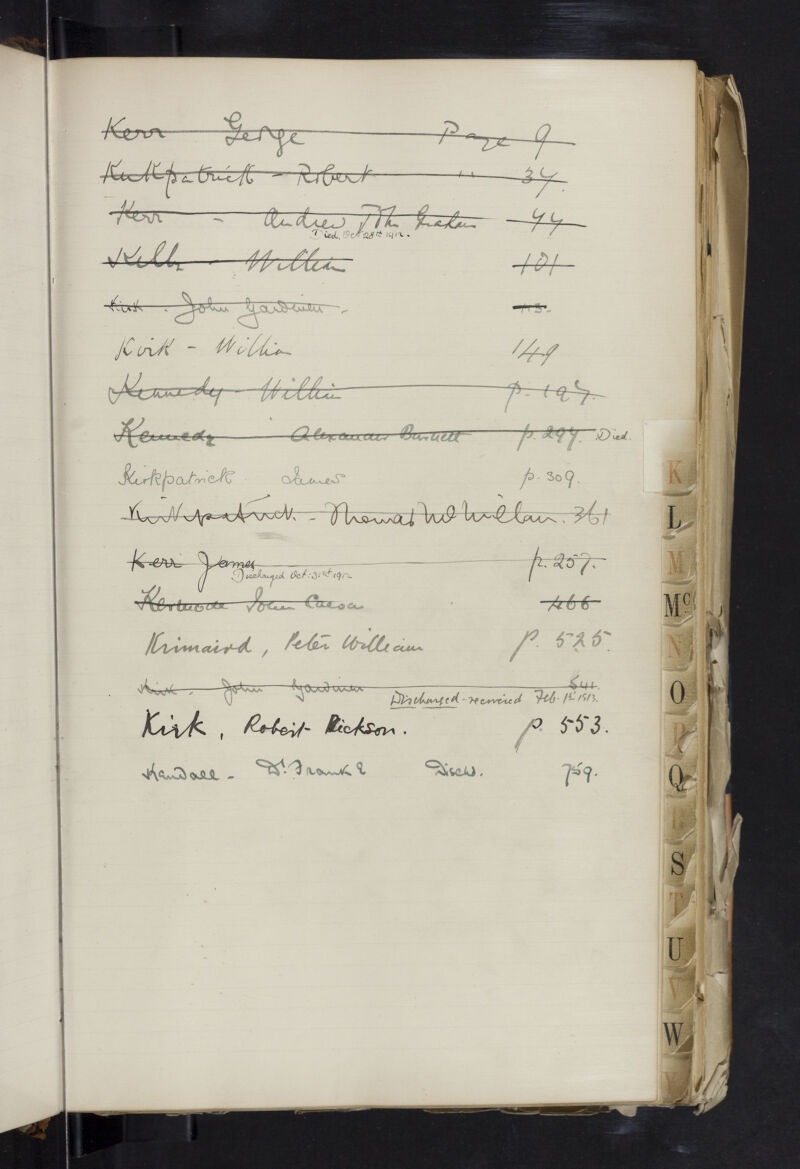 Kerr George Page 9
Kirkpatrick - Robert " 34
Kerr - Andrew John Graham 44
Died Oct 28th 1912.
William 101
Kirk - John Gardiner - 113.
Kirk - William 149
Kennedy - William p. 197.
Kennedy Alexander Burnett p. 297. Died.
Kirkpatrick James p. 309.
Kirkpatrick - Thomas McMillan. 361
Kerr James p. 257.
Discharged Oct: 31st 1912
Kermode John Caesar 466
Krimaird, Peter William p. 525.
Kirk - John Gardiner 541
Discharged - recovered Feb. 1st 1913.
Kirk, Robert Dickson. p. 553.
Kendall - Dr. Frank E Disch. 759.
K
L
M
Mc
N
O
P
Q
R
S
T
U
V
W
Y